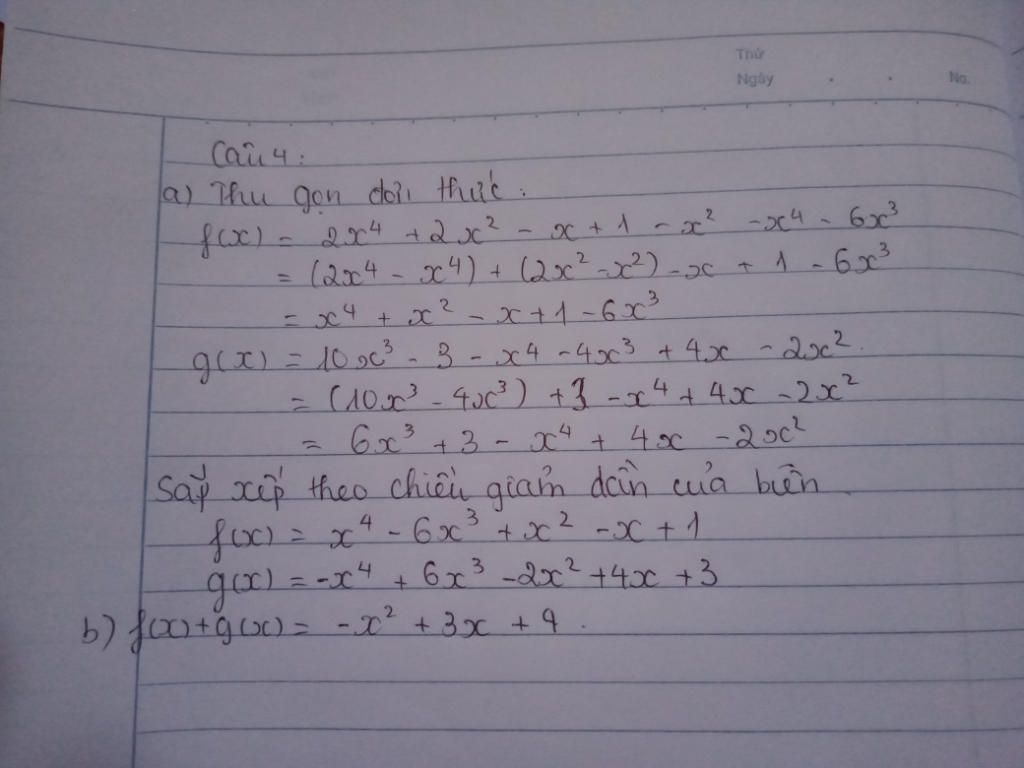 Thứ
Ngày . . No.
Câu 4:
a) Thu gọn đơn thức:
f(x) = 2x⁴ + 2x² - x + 1 - x² - x⁴ - 6x³
= (2x⁴ - x⁴) + (2x² - x²) - x + 1 - 6x³
= x⁴ + x² - x + 1 - 6x³
g(x) = 10x³ - 3 - x⁴ - 4x³ + 4x - 2x².
= (10x³ - 4x³) + 3 - x⁴ + 4x - 2x²
= 6x³ + 3 - x⁴ + 4x - 2x²
Sắp xếp theo chiều giảm dần của biến
f(x) = x⁴ - 6x³ + x² - x + 1
g(x) = -x⁴ + 6x³ - 2x² + 4x + 3
b) f(x) + g(x) = -x² + 3x + 4.